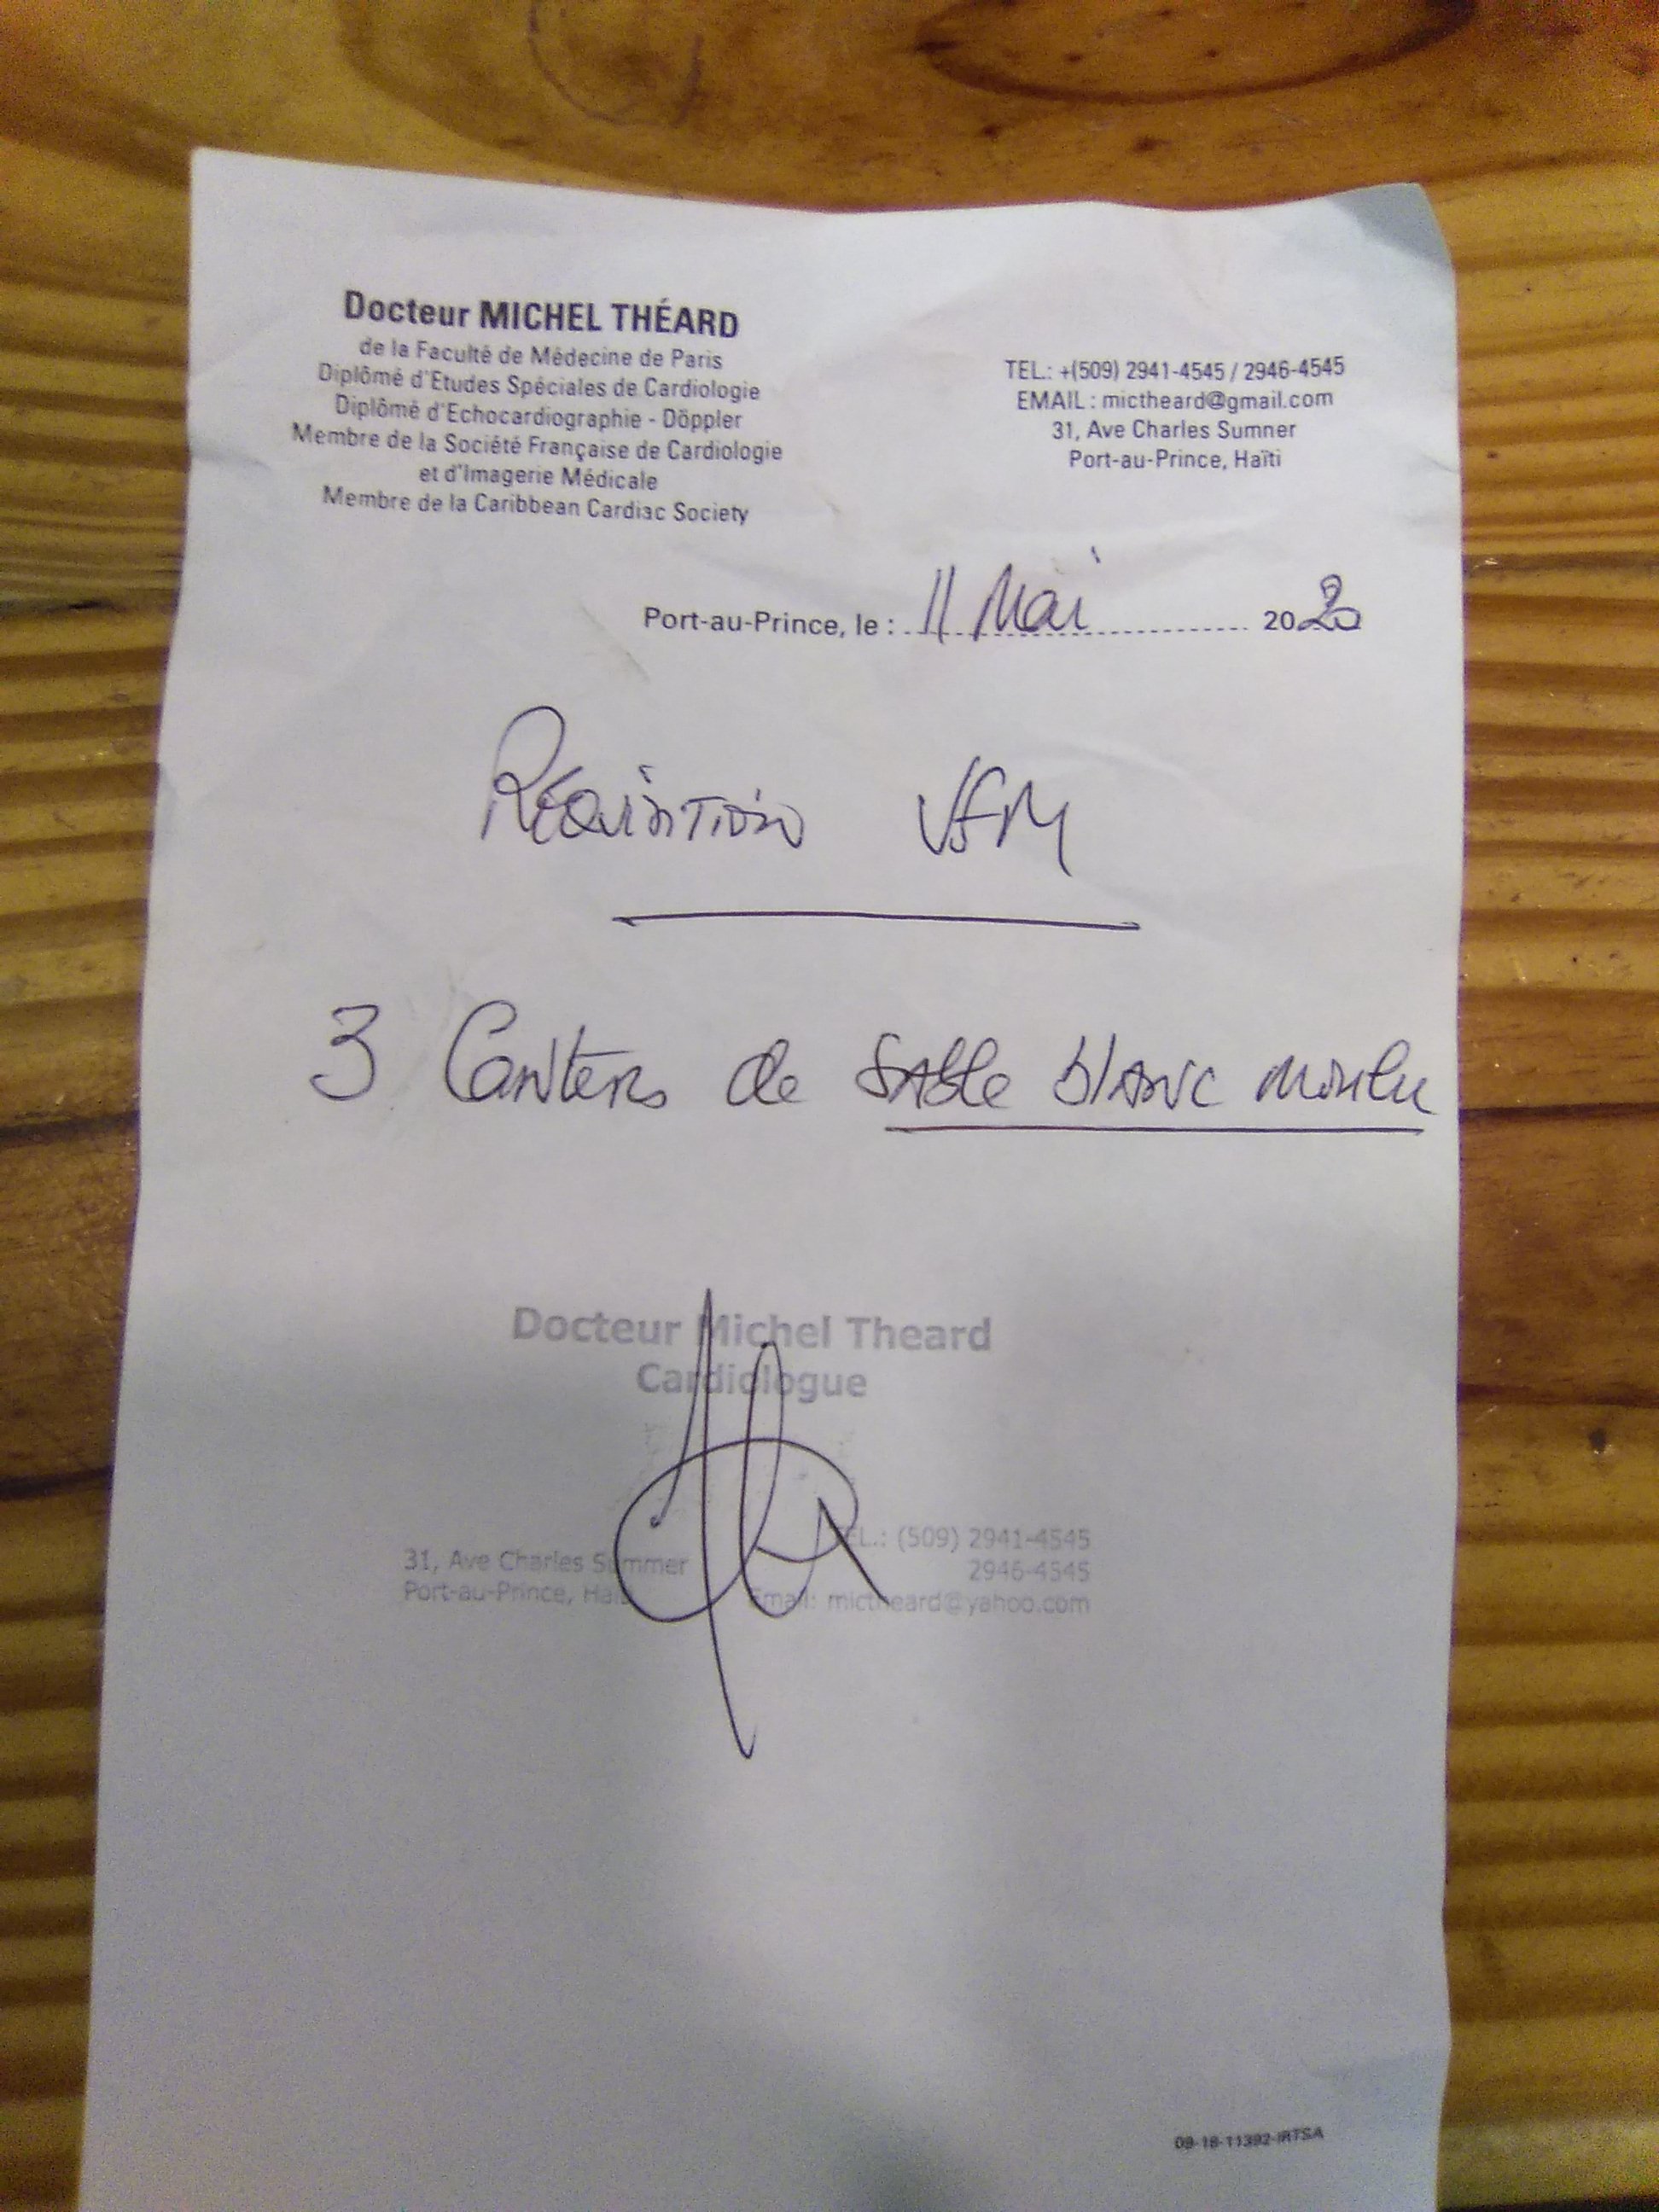 Docteur MICHEL THÉARD
de la Faculté de Médecine de Paris
Diplômé d'Etudes Spéciales de Cardiologie
Diplômé d'Echocardiographie - Döppler
Membre de la Société Française de Cardiologie
et d'Imagerie Médicale
Membre de la Caribbean Cardiac Society
TEL.: +(509) 2941-4545 / 2946-4545
EMAIL : mictheard@gmail.com
31, Ave Charles Sumner
Port-au-Prince, Haïti
Port-au-Prince, le : 11 Mai 2020
Réquisition
3 Canters de sable blanc moulu
Docteur Michel Theard
Cardiologue
31, Ave Charles Summer
Port-au-Prince, Haiti
TEL.: (509) 2941-4545
2946-4545
Email: mictheard@yahoo.com
09-18-11392-IRTSA